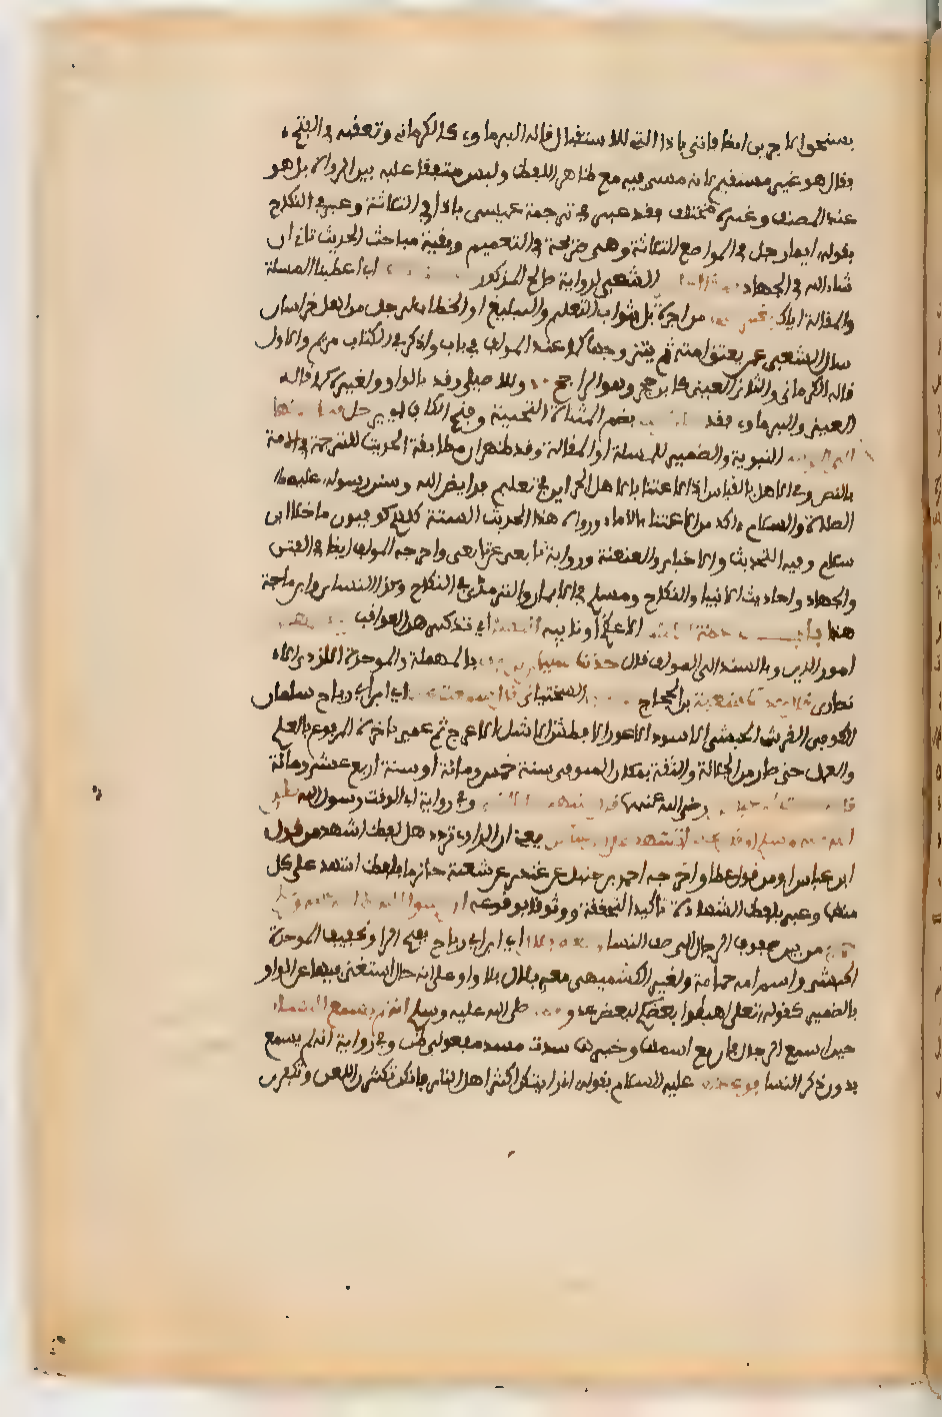 يستحق الاجرين ايضا فاتى باذا التى للاستقبال قاله البرماوى كالكرمانى وتعقبه فى الفتح
وقال هو غير مستقيم لانه مشى فيه مع ظاهر اللفظ وليس متفقا عليه بين الرواة بل هو
عند المصنف وغيره مختلف فقد عبر فى ترجمة عيسى باذا فى الثلاثة وعبر فى النكاح
بقوله ايما رجل فى المواضع الثلاثة وهى صريحة فى التعميم وبقية مباحث الحديث تاتى ان
شاء الله فى الجهاد الشعبى لراوية صالح المذكور اى اعطينا المسلة
والمقالة اياك من اجرة بل بثواب التعليم والتبليغ او الخطاب لرجل من اهل خراسان
سال الشعبى عمن يعتق امته ثم يتزوجها كما عند المولف فى باب واذكر فى الكتاب مريم والاول
قاله الكرمانى والثانى العينى كابن حجر وهو الراجح وللاصيلى وقد بالواو ولغيره كما قاله
العينى والبرماوى فقد بضم المثناة التحتية وفتح الكاف اى يرحل
النبوية والضمير للمسلة او المقالة وقد ظهر ان مطابقة الحديث للترجمة فى الامة
بالنص وفى الاهل بالقياس اذ الاعتنا بالاهل الحراير فى تعليم فرايض الله وسنن رسوله عليه
الصلاة والسلام اكد من الاعتنا بالاماء ورواة هذا الحديث الستة كلهم كوفيون ما خلا ابن
سلام وفيه التحديث والاخبار والعنعنة ورواية تابعى عن تابعى واخرجه المولف ايضا فى العتق
والجهاد واحاديث الانبيا والنكاح ومسلم فى الايمان والترمذى فى النكاح وكذا النساى وابن ماجة
هذا باب الاعظم او نايبه اى تذكيرهن العواقب
امور الدين وبالسند الى المولف قال حدثنا سليمان بن حرب بالمهملة والموحدة الازدى
قال حدثنا شعبة بن الحجاج السختيانى قال سمعت اى ابن ابى رباح سلمان
الكوفى القرشى الحبشى الاسود الاعور الافطس الاشل الاعرج ثم عمى باخرة المرفوع بالعلم
والعمل حتى صار من الجلالة والثقة بمكان المتوفى سنة خمس ومائة او سنة اربع عشر ومائة
قال رضى الله عنهما وفى رواية ابى الوقت رسول الله صلى
الله عليه وسلم او قال اشهد على ابن عباس يعنى ان الراوى تردد هل لفظ اشهد من قول
ابن عباس او من قول عطا واخرجه احمد بن حنبل عن غندر عن شعبة جازما بلفظ اشهد على كل
منهما وعبر بلفظ الشهادة تاكيدا لتحققه ووثوقا بوقوعه ان رسول الله صلى الله عليه وسلم
من بين صفوف الرجال الى صف النسا اى ابن ابى رباح بفتح الرا وتخفيف الموحدة
الحبشى واسم امه حمامة ولغير الكشميهنى معه بلال بلا واو على انه حال استغنى فيها عن الواو
بالضمير كقوله تعالى اهبطوا بعضكم لبعض عدو صلى الله عليه وسلم انه لم يسمع النساء
حين اسمع الرجال فان مع اسمها وخبرها سدت مسد مفعولى ظن وفى رواية انه لم يسمع
بدون ذكر النسا فوعظهن عليه السلام بقوله انى رايتكن اكثر اهل النار لانكن تكثرن اللعن وتكفرن